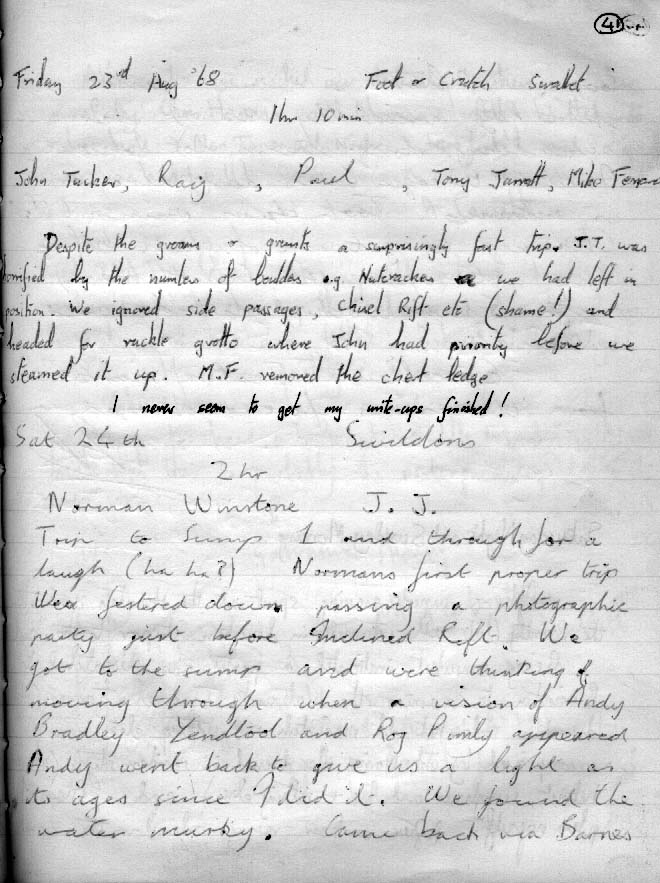 41
Friday 23rd Aug '68 Foot or Crutch Swallet
1hr 10min
John Tucker, Roig, Paul, Tony Jarratt, Mike
Despite the groans & grunts a surprisingly fast trip. J.T. was
horrified by the number of boulders e.g Nutcracker we had left in
position. We ignored side passages, Chisel Rift etc (shame!) and
headed for ruckle grotto where John had priority before we
steamed it up. M.F. removed the chert ledge
I never seem to get my write-ups finished!
Sat 24th Swildons
2hr
Norman Winstone J. J.
Trip to Sump 1 and through for a
laugh (ha ha?) Normans first proper trip
We festered down passing a photographic
party just before Inclined Rift. We
got to the sump and were thinking of
moving through when a vision of Andy
Bradley and Rog appeared
Andy went back to give us a light as
its ages since I did it. We found the
water murky. Came back via Barnes